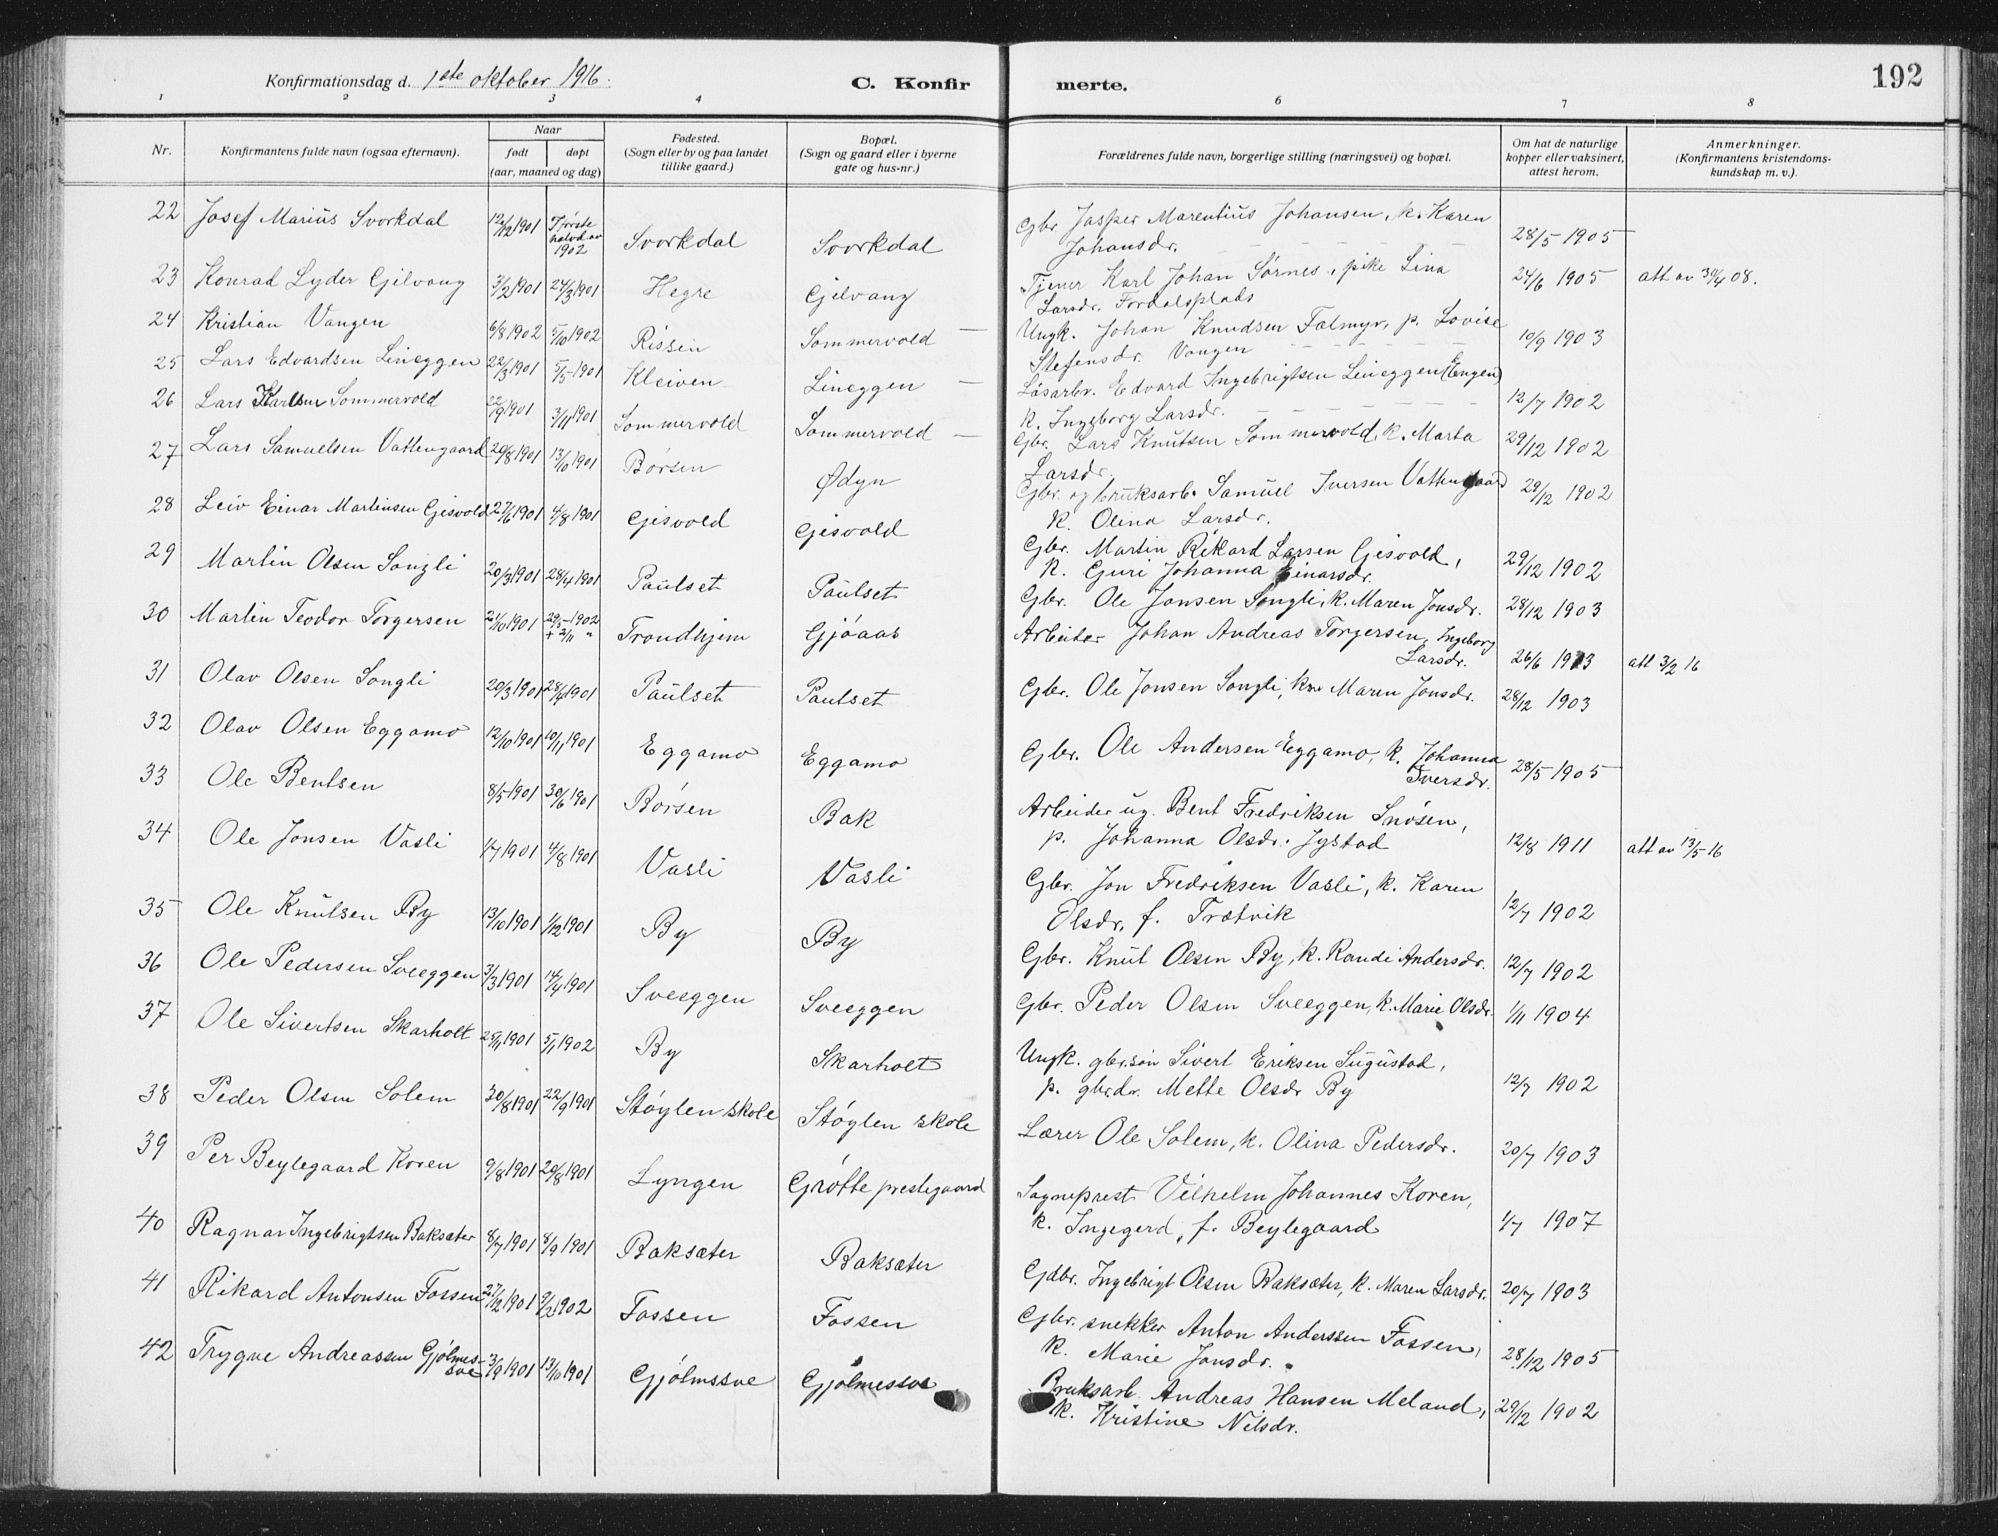 Konfirmationsdag d. 1ste oktober 1916. C. Konfirmerte. 192
1 2 3 4 5 6 7 8
Nr. | Konfirmantens fulde navn (ogsaa efternavn). | Naar født | døpt (aar, maaned og dag) | Fødested. (Sogn eller by og paa landet tillike gaard.) | Bopæl. (Sogn og gaard eller i byerne gate og hus-nr.) | Forældrenes fulde navn, borgerlige stilling (næringsvei) og bopæl. | Om hat de naturlige kopper eller vaksinert, attest herom. | Anmerkninger. (Konfirmantens kristendomskundskap m. v.).
22 Josef Marius Svorkdal 12/12 1901 I første halvd. av 1902 Svorkdal Svorkdal Gbr. Jasper Marentius Johansen, k. Karen Johansdr. 28/5 1905
23 Konrad Lyder Gjelvang 3/2 1901 24/3 1901 Hegre Gjelvang Tjener Karl Johan Sørnes, pike Lina Larsdr. Fordalsplads 24/6 1905 att av 30/4 08.
24 Kristian Vangen 6/8 1902 5/10 1902 Rissen Sommervold Ungk. Johan Knudsen Talmyr, p. Lovise Stefensdr. Vangen 10/9 1903
25 Lars Edvardsen Lineggen 22/3 1901 5/5 1901 Kleiven Lineggen Løsarbr. Edvard Ingebrigtsen Leneggen (Engen) k. Ingeborg Larsdr. 12/7 1902
26 Lars Karlsen Sommervold 22/9 1901 3/11 1901 Sommervold Sommervold Gbr. Lars Knutsen Sommervold, k. Marta Larsdr. 29/12 1902
27 Lars Samuelsen Vattengaard 20/8 1901 13/10 1901 Børsen Ødyn Gbr. og bruksarb. Samuel Iversen Vattengaard k. Olina Larsdr. 29/12 1902
28 Leiv Einar Martinsen Gisvold 27/6 1901 4/8 1901 Gisvold Gisvold Gbr. Martin Rikard Larsen Gisvold, k. Guri Johanna Einarsdr. 29/12 1902
29 Martin Olsen Songli 20/3 1901 28/4 1901 Paulset Paulset Gbr. Ole Jonsen Songli, k. Maren Jonsdr. 28/12 1903
30 Martin Teodor Torgersen 21/10 1901 29/5 1902 + 2/11 " Trondhjem Gjøaas Arbeider Johan Andreas Torgersen, Ingeborg Larsdr. 26/6 1913 att 3/2 16
31 Olav Olsen Songli 20/3 1901 28/4 1901 Paulset Paulset Gbr. Ole Jonsen Songli, k. Maren Jonsdr. 28/12 1903
32 Olav Olsen Eggamo 12/10 1901 10/11 1901 Eggamo Eggamo Gbr. Ole Andersen Eggamo, k. Johanna Iversdr. 28/5 1905
33 Ole Bentsen 8/5 1901 30/6 1901 Børsen Bak Arbeider ug. Bent Fredriksen Snøsen, p. Johanna Olsdr. Jystad 12/8 1911 att av 13/5 16
34 Ole Jonsen Vasli 1/7 1901 4/8 1901 Vasli Vasli Gbr. Jon Fredriksen Vasli, k. Karen Olsdr, f. Trætvik 12/7 1902
35 Ole Knutsen By 13/10 1901 1/12 1901 By By Gbr. Knut Olsen By, k. Randi Andersdr. 12/7 1902
36 Ole Pedersen Sveeggen 3/3 1901 14/4 1901 Sveeggen Sveeggen Gbr. Peder Olsen Sveeggen, k. Marie Olsdr. 1/11 1904
37 Ole Sivertsen Skarholt 25/11 1901 5/1 1902 By Skarholt Ungk. gbr.søn Sivert Eriksen Sugustad, p. gbr.dr. Mette Olsdr By 12/7 1902
38 Peder Olsen Solem 30/8 1901 22/9 1901 Støylen skole Støylen skole Lærer Ole Solem, k. Olina Pedersdr. 20/7 1903
39 Per Beylegaard Koren 9/8 1901 20/8 1901 Lyngen Grøtte prestegaard Sogneprest Vilhelm Johannes Koren, k. Ingegerd, f. Beylegaard 1/7 1907
40 Ragnar Ingebrigtsen Baksæter 8/7 1901 8/9 1901 Baksæter Baksæter Gdbr. Ingebrigt Olsen Baksæter, k. Maren Larsdr. 20/7 1903
41 Rikard Antonsen Fossen 27/12 1901 9/2 1902 Fossen Fossen Gbr. snekker Anton Anderssen Fossen, k. Marie Jonsdr. 28/12 1905
42 Trygve Andreassen Gjølmessve 3/9 1901 13/10 1901 Gjølmssve Gjølmessve Bruksarb. Andreas Hansen Meland, k. Kristine Nilsdr. 29/12 1902